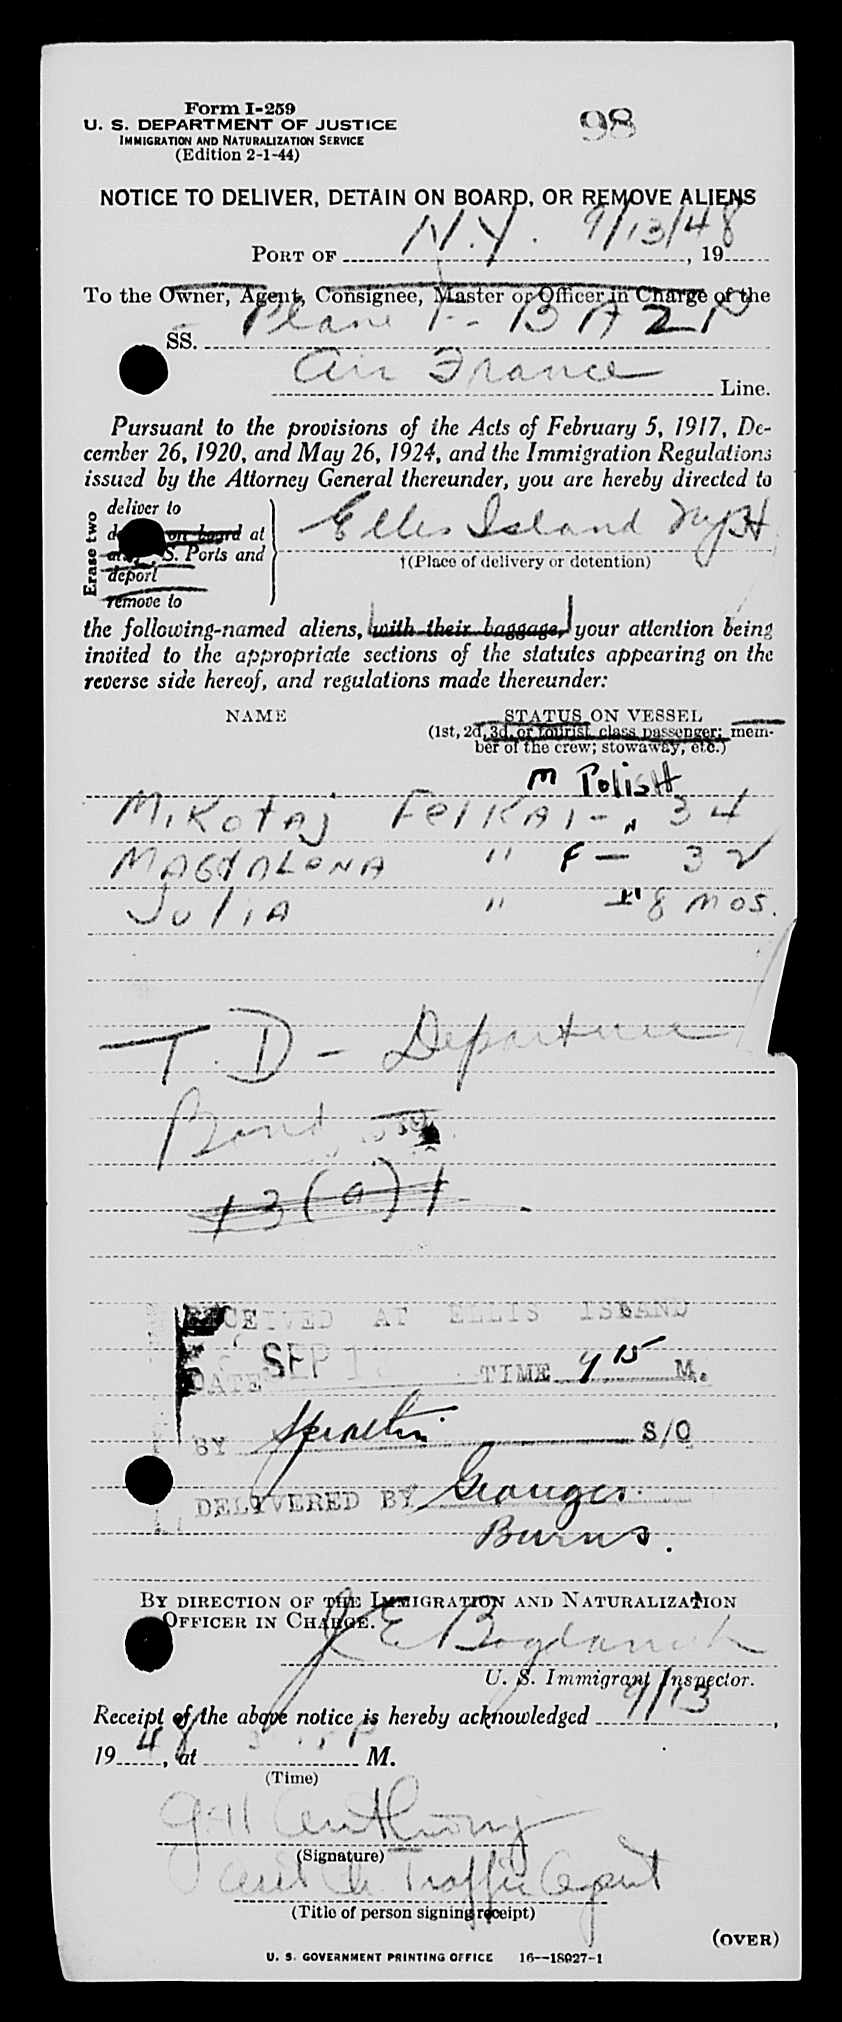 Form I-259
U. S. DEPARTMENT OF JUSTICE
IMMIGRATION AND NATURALIZATION SERVICE
(Edition 2-1-44)
98
NOTICE TO DELIVER, DETAIN ON BOARD, OR REMOVE ALIENS
PORT OF N.Y. 9/13/48, 19
To the Owner, Agent, Consignee, Master or Officer in Charge of the
SS. Plane F-BAZP
Air France Line.
Pursuant to the provisions of the Acts of February 5, 1917, De-
cember 26, 1920, and May 26, 1924, and the Immigration Regulations
issued by the Attorney General thereunder, you are hereby directed to
Erase two
deliver to
on board at
S. Ports and
deport
remove to
Ellis Island NYH
†(Place of delivery or detention)
the following-named aliens, with their baggage, your attention being
invited to the appropriate sections of the statutes appearing on the
reverse side hereof, and regulations made thereunder:
NAME STATUS ON VESSEL
(1st, 2d, 3d, or tourist class passenger; mem-
ber of the crew; stowaway, etc.)
M POLISH
MIKOTAJ FEIKAI - " 34
MAGDALENA " F - 32
JULIA " " 8 MOS.
T.D - Departure
Bond
13(a)1
RECEIVED AT ELLIS ISLAND
DATE SEP 1 TIME 9 15 M.
BY S/O
DELIVERED BY Georges
Burns.
BY DIRECTION OF THE IMMIGRATION AND NATURALIZATION
OFFICER IN CHARGE.
J E Bogdan
U. S. Immigrant Inspector.
Receipt of the above notice is hereby acknowledged 9/13,
1948, at P M.
(Time)
Anthony
(Signature)
Traffic Agent
(Title of person signing receipt)
(OVER)
U. S. GOVERNMENT PRINTING OFFICE 16—18927-1